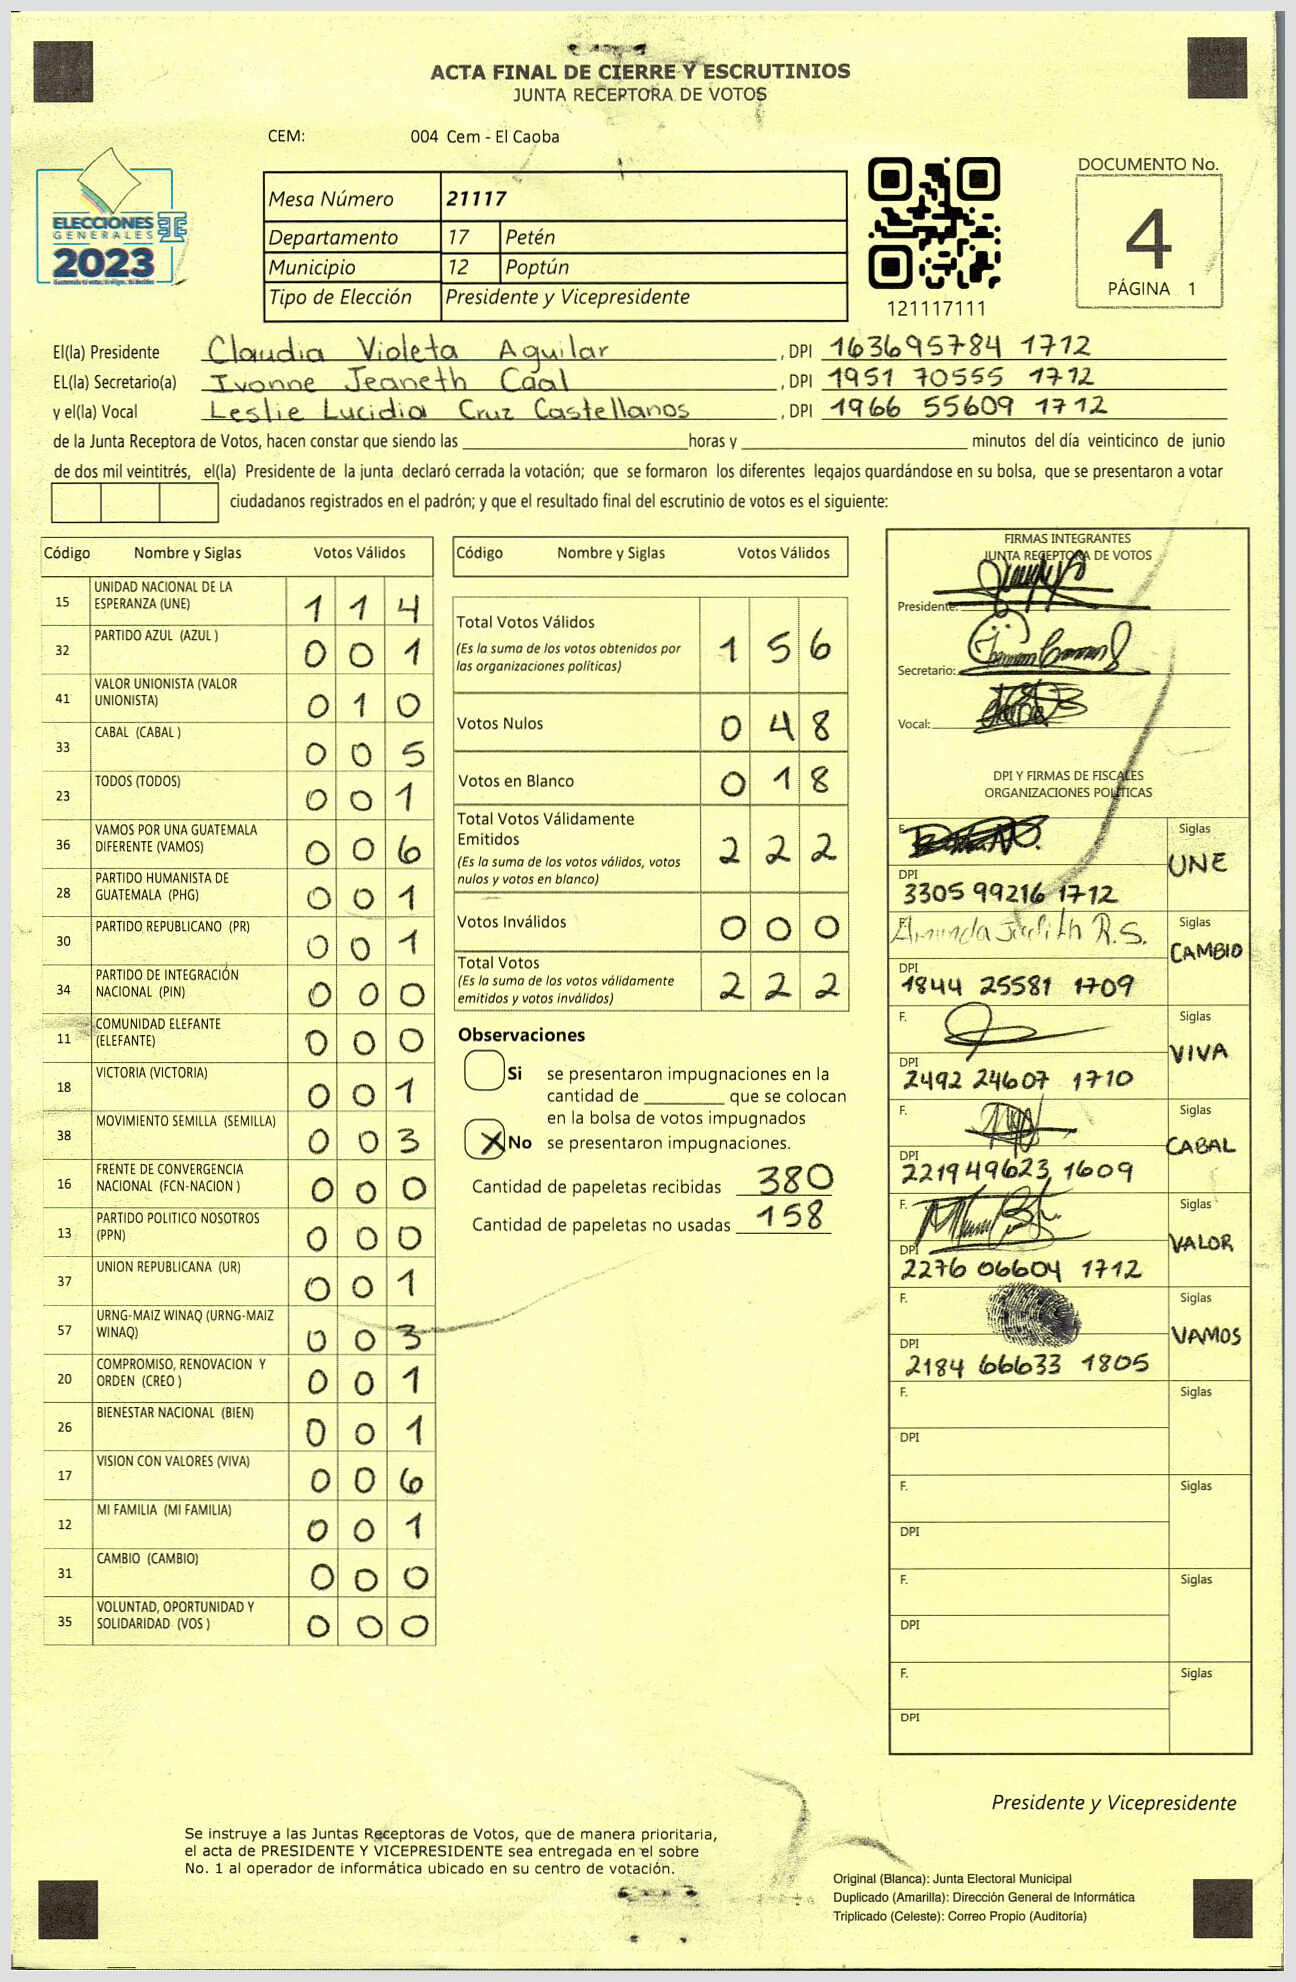 ACTA FINAL DE CIERRE Y ESCRUTINIOS
JUNTA RECEPTORA DE VOTOS
CEM: 004 Cem - El Caoba
ELECCIONES
GENERALES
2023
Mesa Número 21117
Departamento 17 Petén
Municipio 12 Poptún
Tipo de Elección Presidente y Vicepresidente
121117111
DOCUMENTO No.
4
PÁGINA 1
El(la) Presidente Claudia Violeta Aguilar , DPI 163695784 1712
EL(la) Secretario(a) Ivonne Jeaneth Caal , DPI 1951 70555 1712
y el(la) Vocal Leslie Lucidia Cruz Castellanos , DPI 1966 55609 1712
de la Junta Receptora de Votos, hacen constar que siendo las horas y minutos del día veinticinco de junio
de dos mil veintitrés, el(la) Presidente de la junta declaró cerrada la votación; que se formaron los diferentes legajos guardándose en su bolsa, que se presentaron a votar
ciudadanos registrados en el padrón; y que el resultado final del escrutinio de votos es el siguiente:
Código Nombre y Siglas Votos Válidos
15 UNIDAD NACIONAL DE LA ESPERANZA (UNE) 1 1 4
32 PARTIDO AZUL (AZUL ) 0 0 1
41 VALOR UNIONISTA (VALOR UNIONISTA) 0 1 0
33 CABAL (CABAL ) 0 0 5
23 TODOS (TODOS) 0 0 1
36 VAMOS POR UNA GUATEMALA DIFERENTE (VAMOS) 0 0 6
28 PARTIDO HUMANISTA DE GUATEMALA (PHG) 0 0 1
30 PARTIDO REPUBLICANO (PR) 0 0 1
34 PARTIDO DE INTEGRACIÓN NACIONAL (PIN) 0 0 0
11 COMUNIDAD ELEFANTE (ELEFANTE) 0 0 0
18 VICTORIA (VICTORIA) 0 0 1
38 MOVIMIENTO SEMILLA (SEMILLA) 0 0 3
16 FRENTE DE CONVERGENCIA NACIONAL (FCN-NACION ) 0 0 0
13 PARTIDO POLITICO NOSOTROS (PPN) 0 0 0
37 UNION REPUBLICANA (UR) 0 0 1
57 URNG-MAIZ WINAQ (URNG-MAIZ WINAQ) 0 0 3
20 COMPROMISO, RENOVACION Y ORDEN (CREO ) 0 0 1
26 BIENESTAR NACIONAL (BIEN) 0 0 1
17 VISION CON VALORES (VIVA) 0 0 6
12 MI FAMILIA (MI FAMILIA) 0 0 1
31 CAMBIO (CAMBIO) 0 0 0
35 VOLUNTAD, OPORTUNIDAD Y SOLIDARIDAD (VOS ) 0 0 0
Código Nombre y Siglas Votos Válidos
Total Votos Válidos 1 5 6
(Es la suma de los votos obtenidos por
las organizaciones políticas)
Votos Nulos 0 4 8
Votos en Blanco 0 1 8
Total Votos Válidamente
Emitidos 2 2 2
(Es la suma de los votos válidos, votos
nulos y votos en blanco)
Votos Inválidos 0 0 0
Total Votos 2 2 2
(Es la suma de los votos válidamente
emitidos y votos inválidos)
Observaciones
Si se presentaron impugnaciones en la
cantidad de que se colocan
en la bolsa de votos impugnados
X No se presentaron impugnaciones.
Cantidad de papeletas recibidas 380
Cantidad de papeletas no usadas 158
FIRMAS INTEGRANTES
JUNTA RECEPTORA DE VOTOS
Presidente:
Secretario:
Vocal:
DPI Y FIRMAS DE FISCALES
ORGANIZACIONES POLÍTICAS
F. Siglas
UNE
DPI
3305 99216 1712
F. Judith R.S. Siglas
CAMBIO
DPI
1844 25581 1709
F. Siglas
VIVA
DPI
2492 24607 1710
F. Siglas
CABAL
DPI
2219 49623 1609
F. Siglas
VALOR
DPI
2276 06604 1712
F. Siglas
VAMOS
DPI
2184 66633 1805
F. Siglas
DPI
F. Siglas
DPI
F. Siglas
DPI
F. Siglas
DPI
Presidente y Vicepresidente
Se instruye a las Juntas Receptoras de Votos, que de manera prioritaria,
el acta de PRESIDENTE Y VICEPRESIDENTE sea entregada en el sobre
No. 1 al operador de informática ubicado en su centro de votación.
Original (Blanca): Junta Electoral Municipal
Duplicado (Amarilla): Dirección General de Informática
Triplicado (Celeste): Correo Propio (Auditoría)